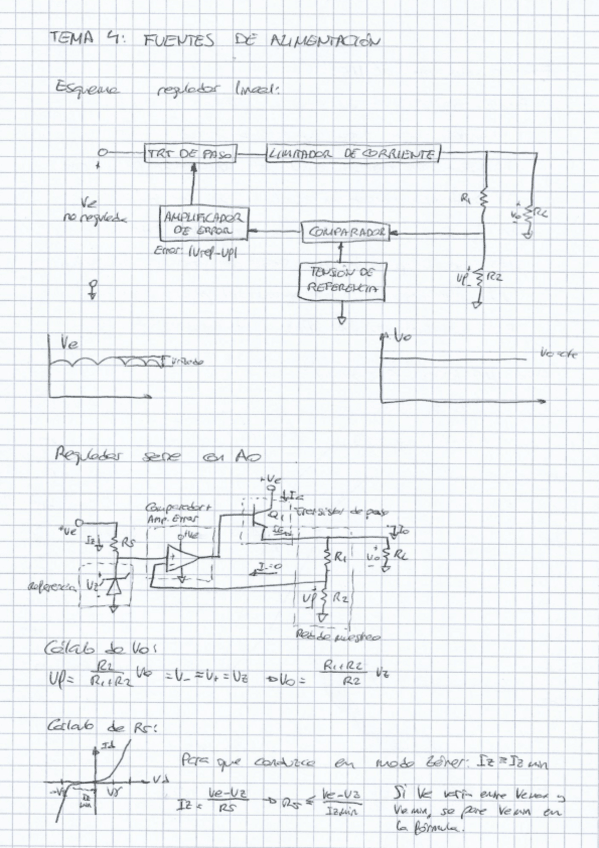 TEMA 4: FUENTES DE ALIMENTACIÓN
Esquema regulador lineal:
TRT DE PASO
LIMITADOR DE CORRIENTE
+
Ve
no regulada
AMPLIFICADOR
DE ERROR
Error: |Vref-Vp|
COMPARADOR
TENSIÓN DE
REFERENCIA
R1
Vo
RL
Vp
R2
Ve
Vrizado
Vo
Vo=cte
Regulador serie con AO
+Ve
Iz
RS
Referencia
Vz
Comparador+
Amp. Error
+Ve
+Ve
Q1
Transistor de paso
I-=0
Io
R1
RL
Vo
Vp
R2
Red de muestreo
Cálculo de Vo:
Vp = R2/(R1+R2) Vo = V- = V+ = Vz → Vo = (R1+R2)/R2 Vz
Cálculo de RS:
Id
-Vz
Vγ
Vd
Iz
min
Para que conduzca en modo zéner: Iz ≥ Iz min
Iz = (Ve-Vz)/RS → RS ≤ (Ve-Vz)/Izmin
Si Ve varía entre Vemax y
Vemin, se pone Vemin en
la fórmula.